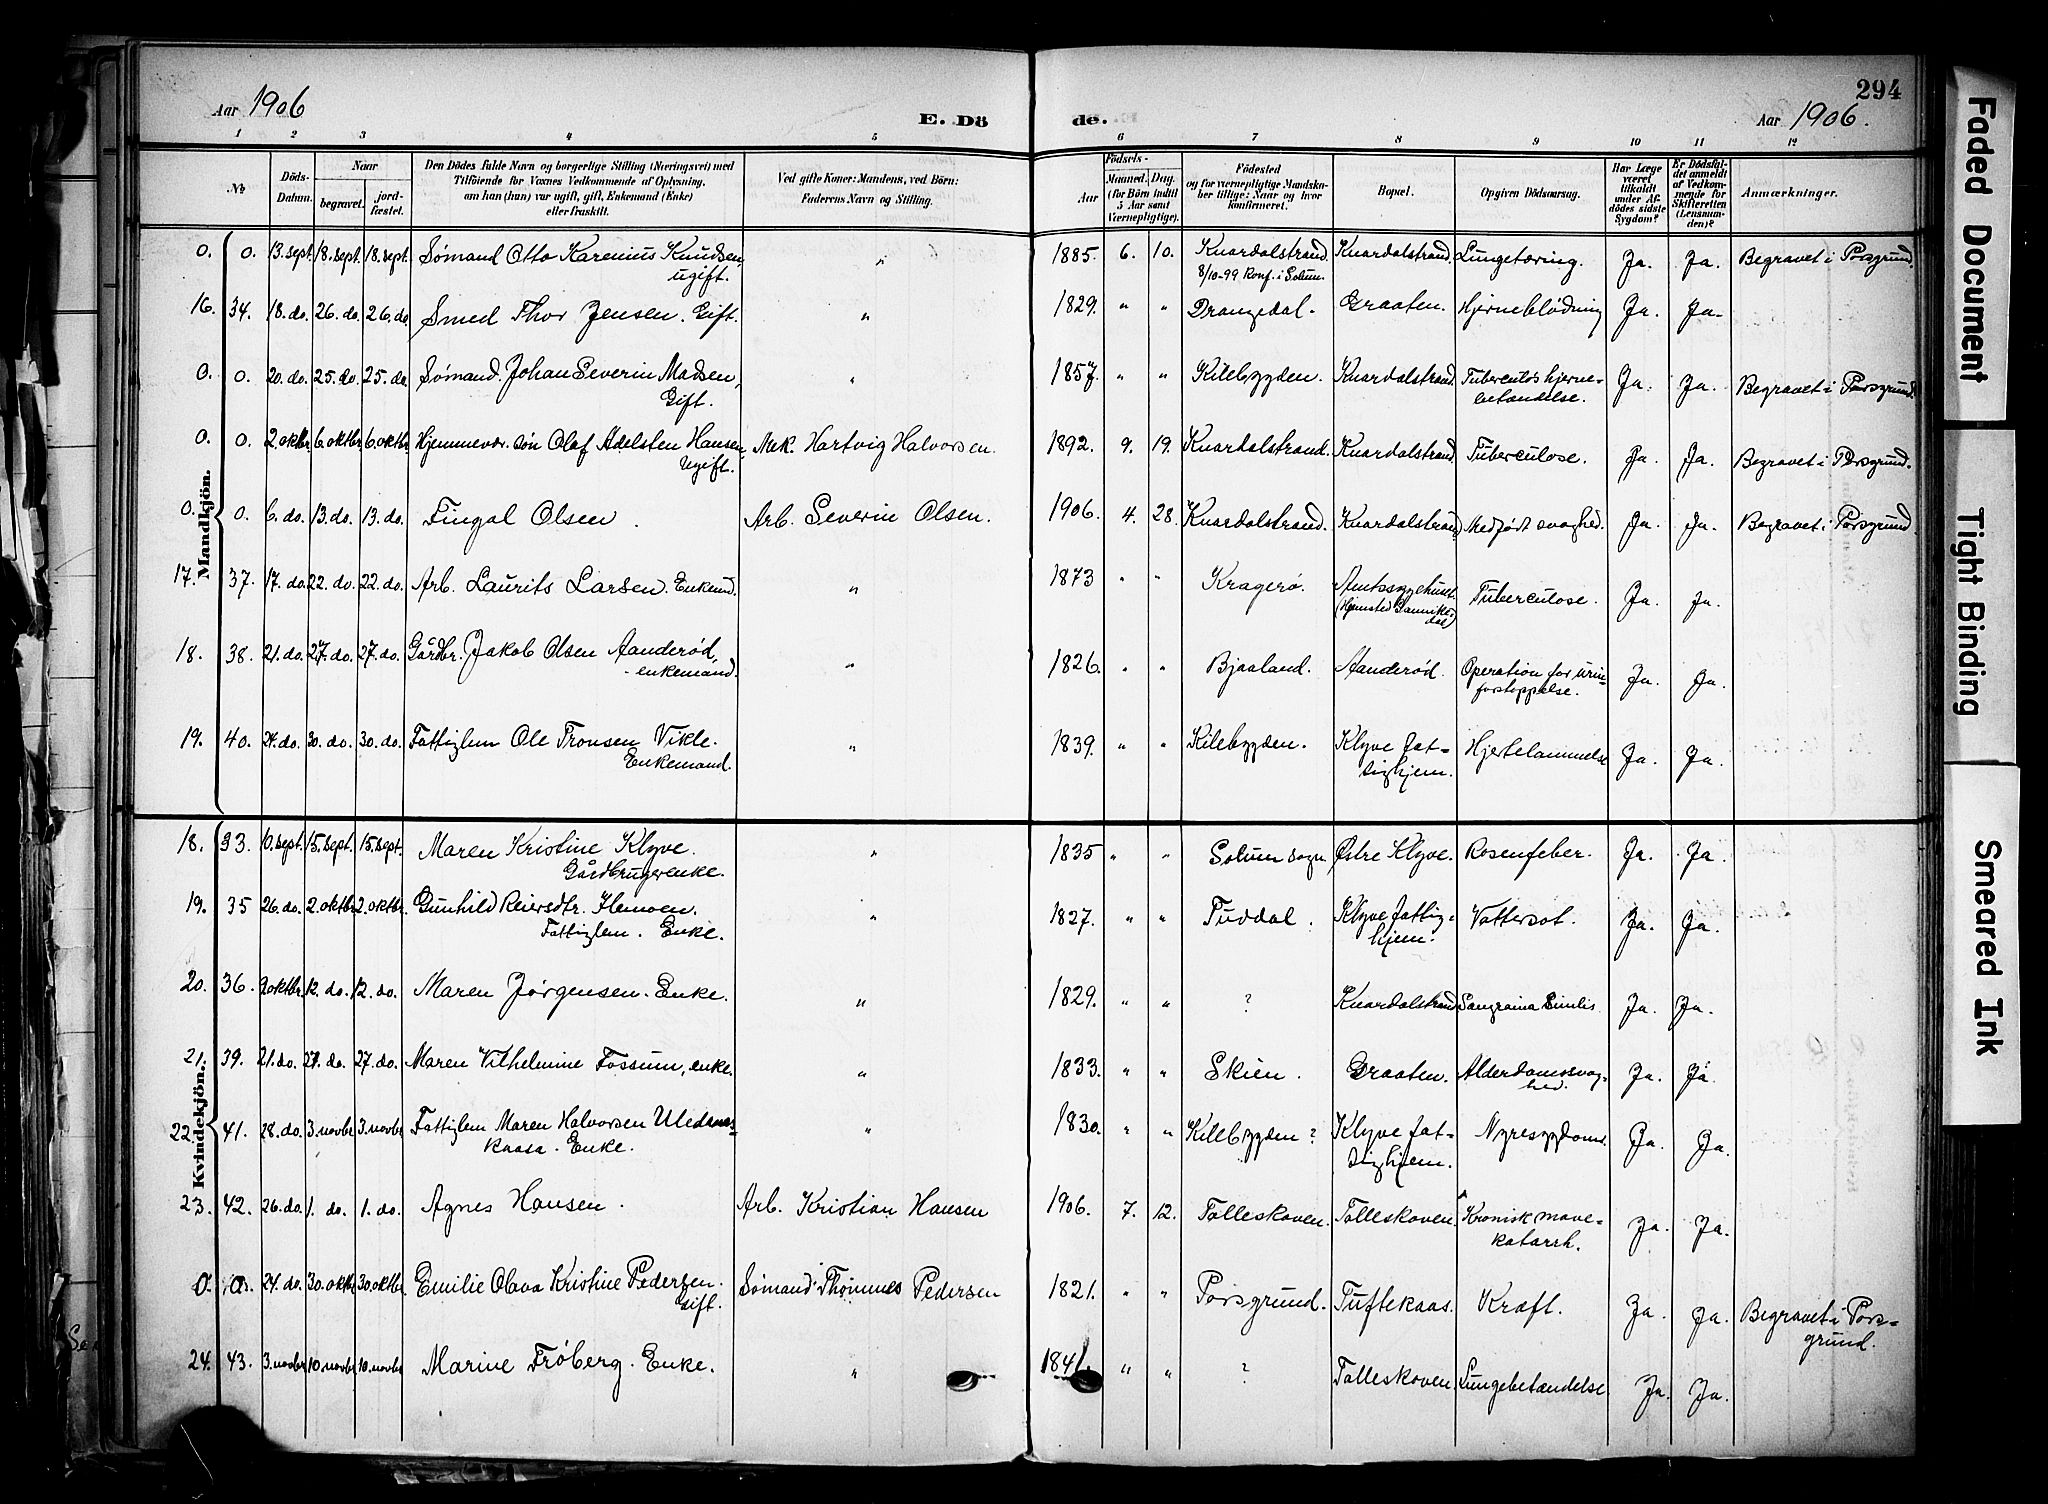 294
Aar 1906
E. Dö
de.
Aar 1906.
1 2 3 4 5 6 7 8 9 10 11 12
№
Döds-Datum.
Naar
begravet.
jord-fæstet.
Den Dödes fulde Navn og borgerlige Stilling (Næringsvei) med
Tilföiende for Voxnes Vedkommende af Oplysning,
om han (hun) var ugift, gift, Enkemand (Enke)
eller fraskilt.
Ved gifte Koner: Mandens, ved Börn:
Faderens Navn og Stilling.
Födsels-
Aar
Maaned. Dag.
(for Börn indtil
5 Aar samt
Værnepligtige).
Födested
og for værnepligtige Mandska-
ber tillige: Naar og hvor
konfirmeret.
Bopæl.
Opgiven Dödsaarsag.
Har Læge
været
tilkaldt
under Af-
dödes sidste
Sygdom?
Er Dödsfal-
det anmeldt
af Vedkom-
mende for
Skifteretten
(Lensman-
den)?
Anmærkninger.
Mandkjön.
0. 0. 13. sept. 18. sept. 18. sept. Sømand Otto Karenius Knudsen, " 1885. 6. 10. Knardalstrand. Knardalstrand. Lungetæring. Ja. Ja. Begravet i Porsgrund.
ugift. 8/10-99 Konf. i Solum.
16. 34. 18. do. 26. do. 26. do. Smed Thor Jensen. Gift. " 1829. " " Drangedal. Graaten. Hjerneblødning Ja. Ja.
0. 0. 20. do. 25. do. 25. do. Sømand. Johan Severin Madsen, " 1857. " " Kilebygden. Knardalstrand. Tuberculøs hjerne- Ja. Ja. Begravet i Porsgrund.
Gift. betændelse.
0. 0. 2. oktbr. 6. oktbr. 6. oktbr. Hjemmevær. søn Olaf Adelsten Hansen, Mek. Hartvig Halvorsen. 1892. 9. 19. Knardalstrand. Knardalstrand. Tuberculose. Ja. Ja. Begravet i Porsgrund.
Ugift.
0. 0. 6. do. 13. do. 13. do. Fingal Olsen. Arb. Severin Olsen. 1906. 4. 28. Knardalstrand. Knardalstrand. Medfødt svaghed. Ja. Ja. Begravet i Porsgrund.
17. 37. 17. do. 22. do. 22. do. Arb. Laurits Larsen. Enkemd. " 1873 " " Kragerø. Amtssygehuset. Tuberculose. Ja. Ja.
(Hjemsted
18. 38. 21. do. 27. do. 27. do. Gårdbr. Jakob Olsen Aanderød, " 1826. " " Bjaaland. Aanderød. Operation for urin- Ja. Ja.
enkemand. forstoppelse.
19. 40. 24. do. 30. do. 30. do. Fattiglem Ole Tronsen Vikle. " 1839. " " Kilebygden. Klyve fat- Hjertelammelse Ja. Ja.
Enkemand. tighjem.
Kvindekjön.
18. 33. 10. sept. 15. sept. 15. sept. Maren Kristine Klyve. " 1835 " " Solum sogn Østre Klyve. Rosenfeber. Ja. Ja.
Gårdbrugerenke.
19. 35 26. do. 2. oktbr. 2. oktbr. Gunhild Reiersdtr. Hemoen. " 1827. " " Tuddal. Klyve fattig- Vattersot. Ja. Ja.
Fattiglem. Enke. hjem.
20. 36. oktbr. 12. do. 12. do. Maren Jørgensen. Enke. " 1829. " " ? Knardalstrand Ja. Ja.
21. 39. 21. do. 27. do. 27. do. Maren Vilhelmine Fossum, enke. " 1833. " " Skien. Graaten. Alderdomssvag- Ja. Ja.
hed.
22. 41. 28. do. 3. novbr. 3. novbr. Fattiglem Maren Halvorsen " 1830. " " Kilebygden? Klyve fat- Nyresygdom. Ja. Ja.
kaasa. Enke. tighjem.
23. 42. 26. do. 1. do. 1. do. Agnes Hansen. Arb. Kristian Hansen 1906. 7. 12. Tolleskoven. Tolleskoven. Kronisk mave- Ja. Ja.
katarrh.
0. 0. 24. do. 30. oktbr. 30. oktbr. Emilie Olava Kristine Pedersen. Sømand Thommes Pedersen 1821. " " Porsgrund. Tuftekaas. Kræft. Ja. Ja. Begravet i Pors-
Gift. grund.
24. 43. 3. novbr. 10. novbr. 10. novbr. Marine Frøberg. Enke. " " " ? Tolleskoven. Lungebetændelse. Ja. Ja.
Faded Document
Tight Binding
Smeared Ink